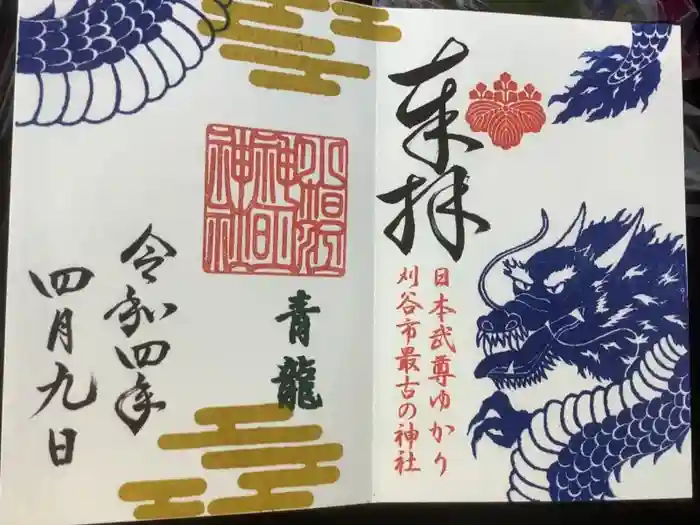 奉拝
日本武尊ゆかり
刈谷市最古の神社
青龍
令和四年
四月九日